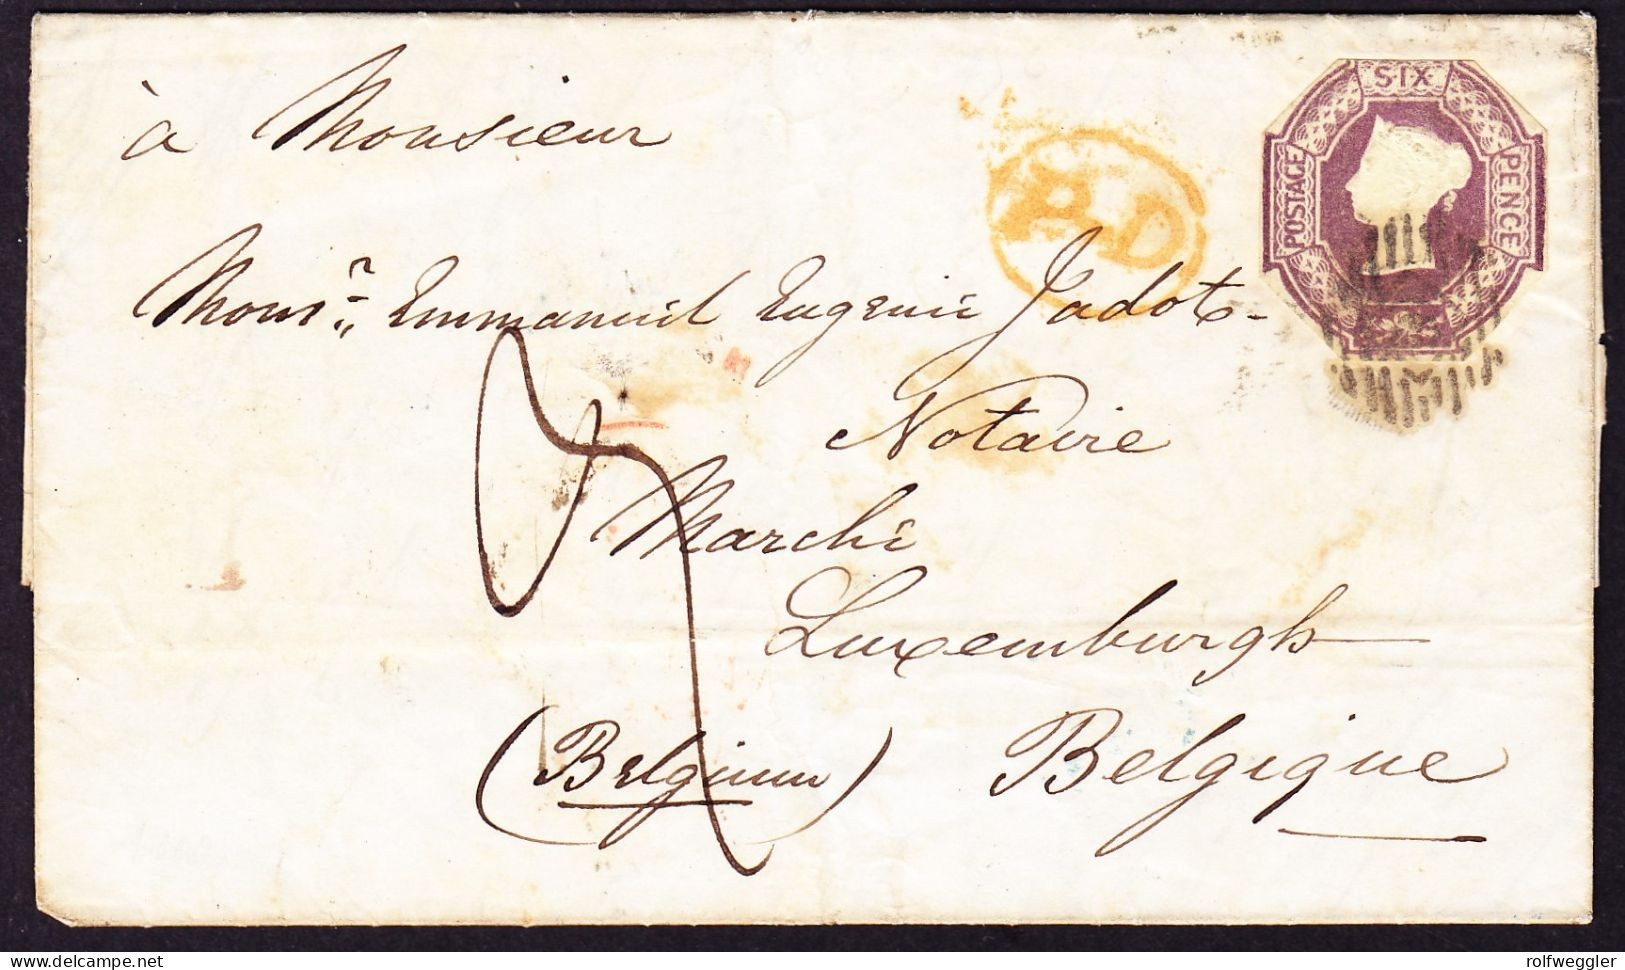 à Monsieur
SIX
POSTAGE
PENCE
PD
Monsr. Emmanuel Eugenie Jadot-
Notaire
Marchi
Luxemburgh
(Belgium) Belgique
delcampe.net
rolfweggler